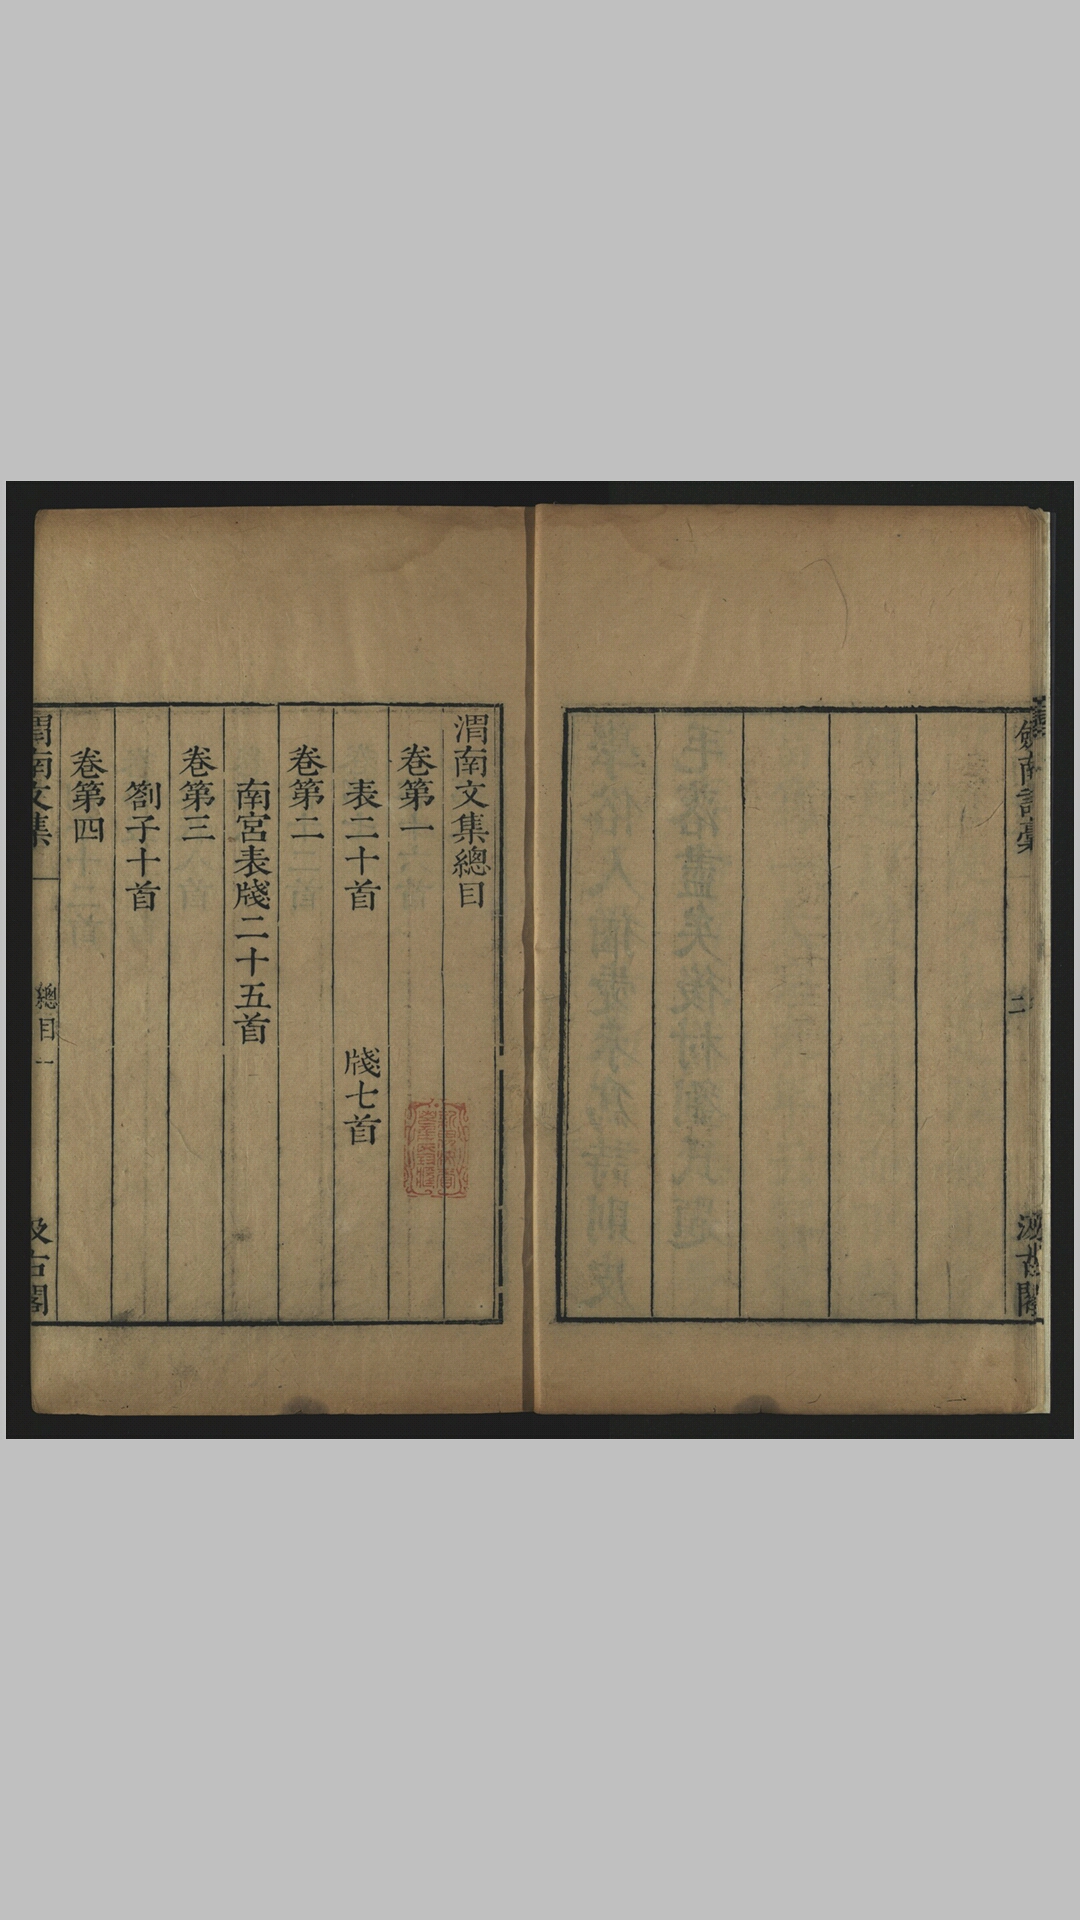 劍南詩稾
二
汲古閣
渭南文集總目
卷第一
表二十首 牋七首
卷第二
南宮表牋二十五首
卷第三
劄子十首
卷第四
渭南文集
總目
一
汲古閣